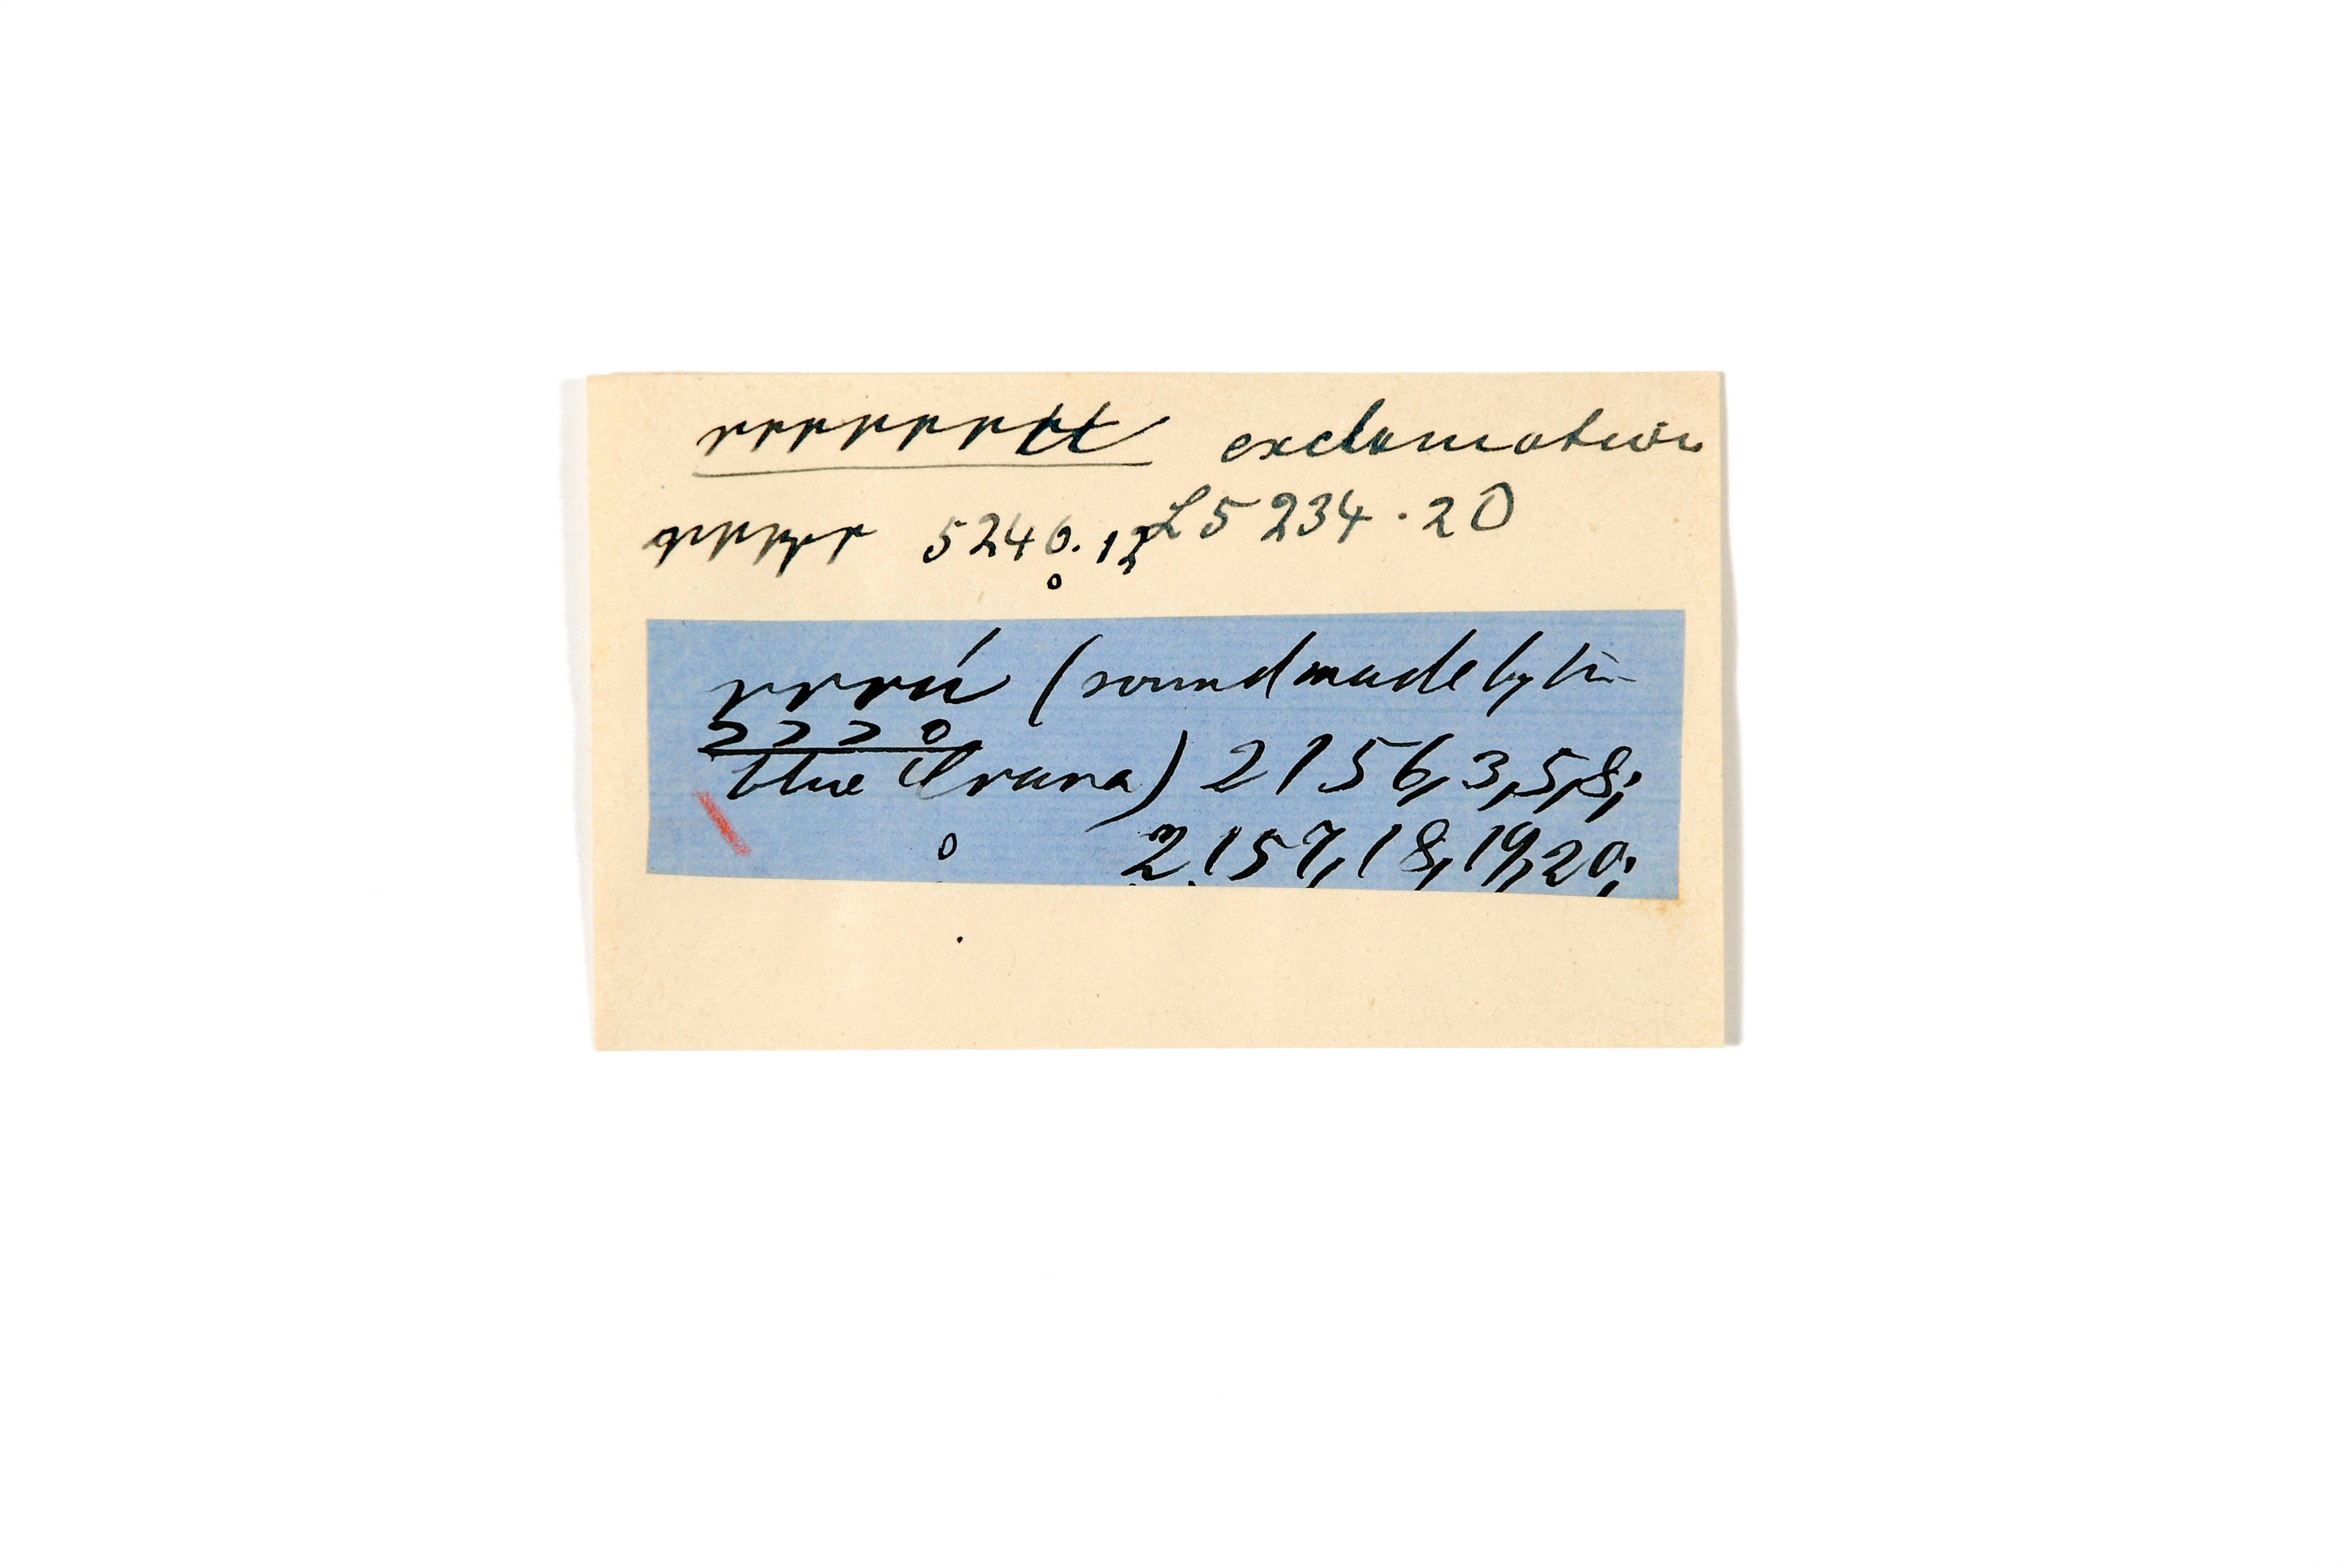 rrrrrrrtt exclamation
L5 234.20
rrrrr 5240.12
rrrú (sound made by the
blue Crane) 2156, 3, 5, 8;
2157, 18, 19, 20;